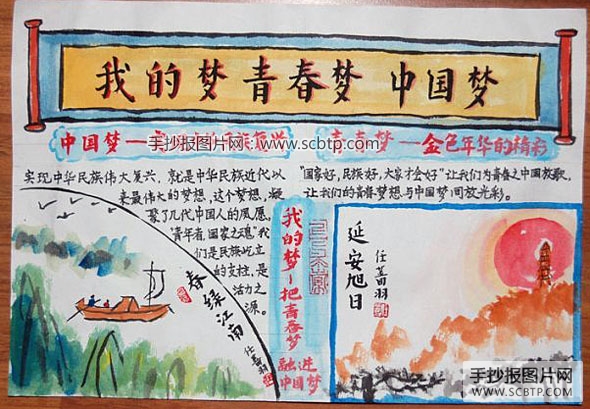 我的梦 青春梦 中国梦
中国梦—
手抄报图片网
www.scbtp.com
青春梦—金色年华的精彩
实现中华民族伟大复兴，就是中华民族近代以
来最伟大的梦想，这个梦想，凝
聚了几代中国人的夙愿。
"青年者，国家之魂"我
们是民族屹立
的支柱，是
活力之
源。
"国家好，民族好，大家才会好"让我们为青春之中国放歌，
让我们的青春梦想与中国梦同放光彩。
春绿江南
我的梦—把青春梦
融进
中国梦
延安旭日
手抄报图片网
WWW.SCBTP.COM